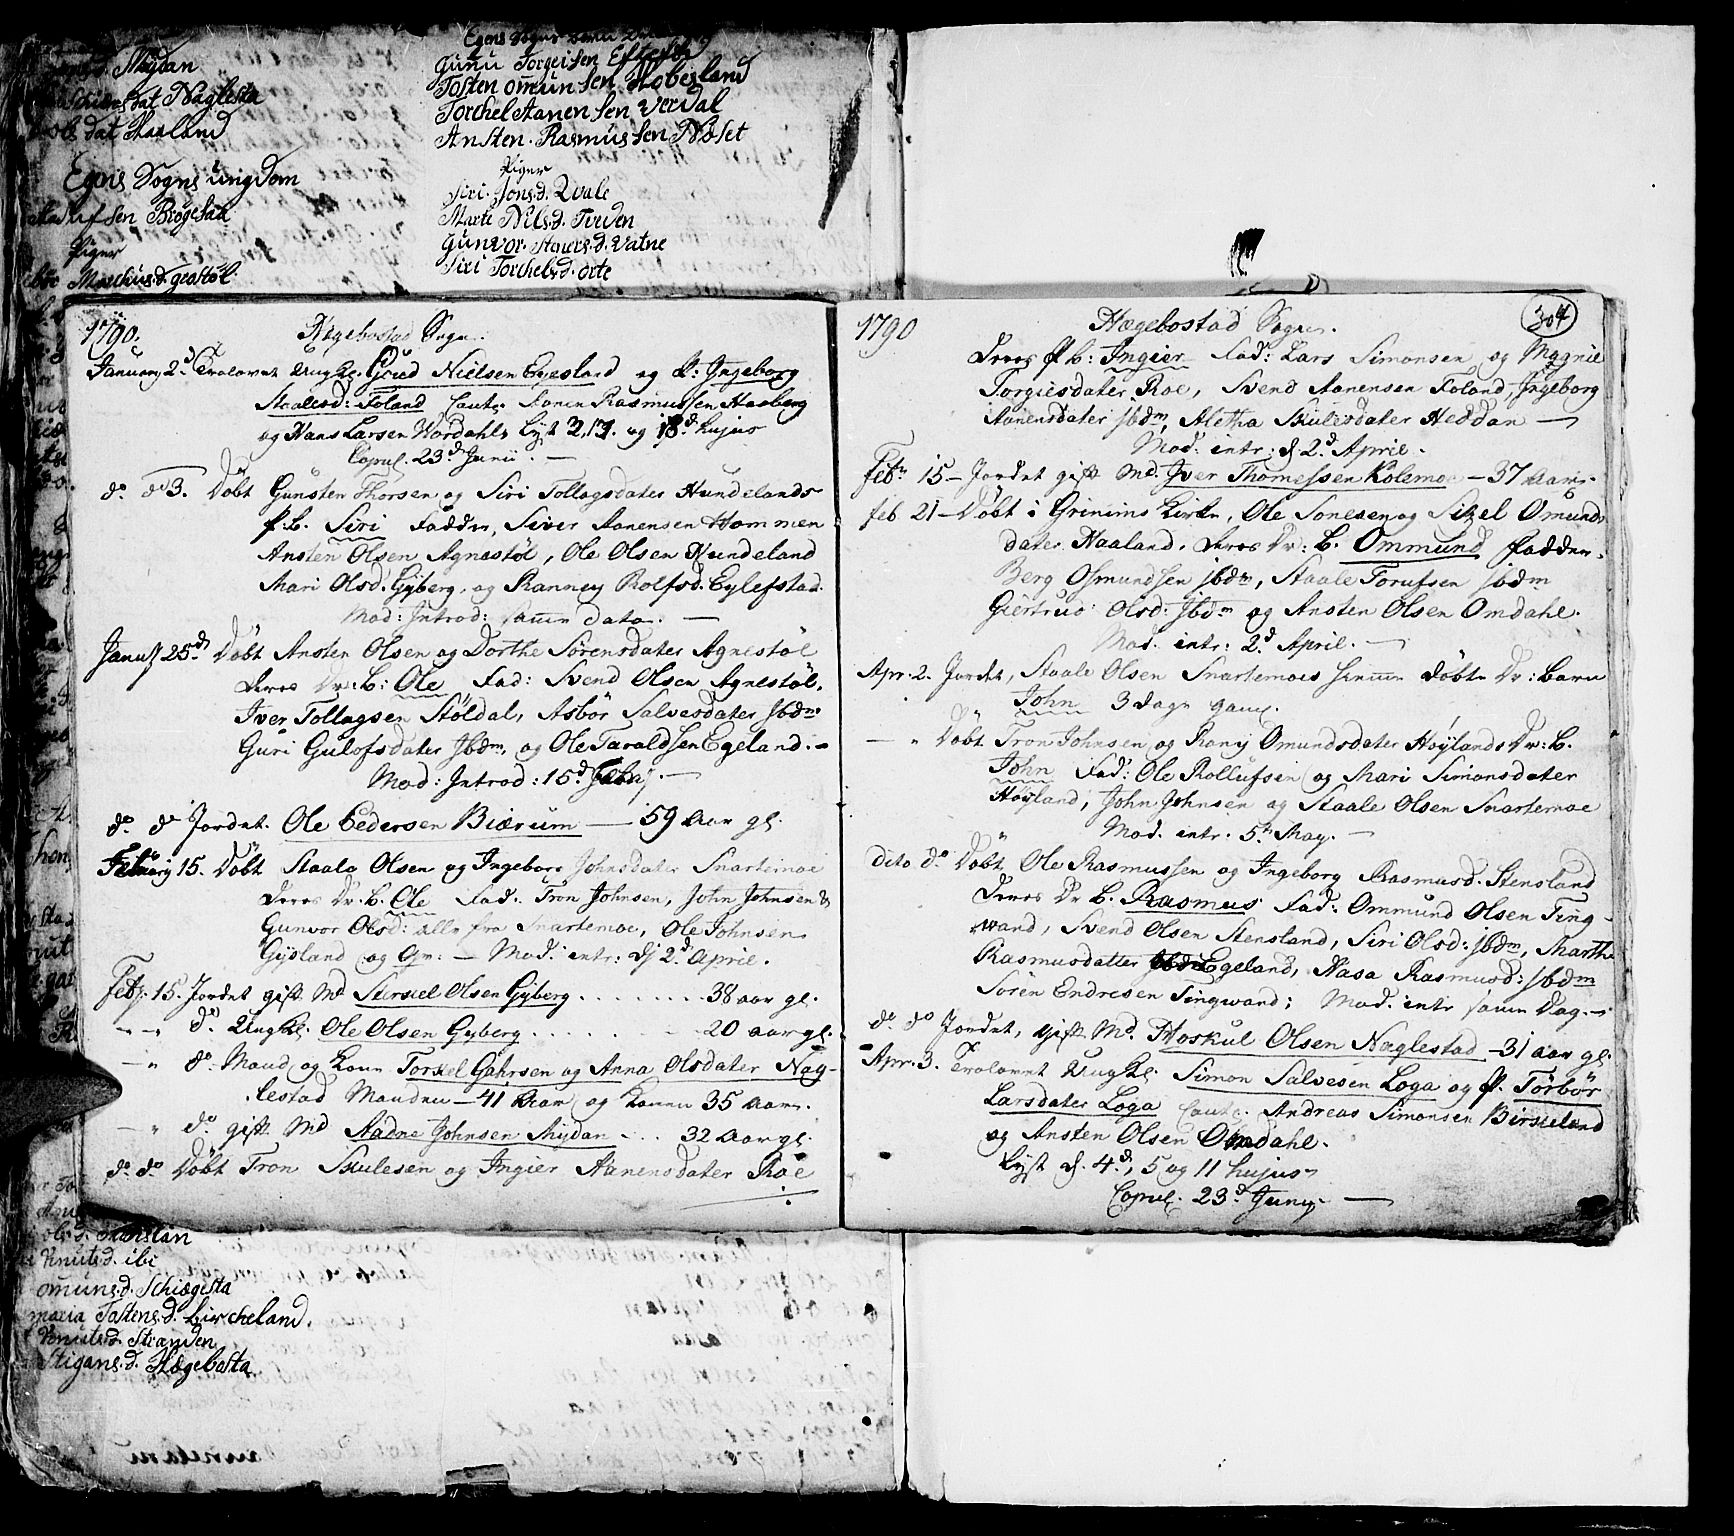 Mÿdan
dat Naglesta
dat Haaland
Egens Sogns ungdom
sen Brøgesaa
Piger
Marchus.d. geostøl
Egens Sogns
Gunu Torgeisen Eftestøl
Tosten omunsen Hobesland
Torchel Aanensen Verdal
Ansten Rasmussen Nøset
Piger
Siri Jons.d. Qvale
Marte Nils.d. Tveden
Gunvor Steners.d. Vatne
Siri Torchels.d. orte
1790. Hægebostad Sogn.
January 2d Trolovet Ungkl. Goud Nielsen Egeland og P: Ingeborg
Staalesd: Foland Caut. Aanen Rasmussen Haaberg
og Hans Larsen Wordahls Lyst 3, 17. og 18d hujus
Copul. 23d Junii. —
do do 3. Døbt Gunsten Thorsen og Siri Tollagsdater Hundelands
P.b. Siri Faddre, Siver Aanensen Hommen
Ansten Olsen Agnestøl, Ole Olsen Hundeland
Mari Olsd. Gÿberg, og Ranney Rolfsd. Eylefstad.
Mod: Introd: samme dato. —
Janur 25d Døbt Ansten Olsen og Dorthe Sørensdater Agnestøl
Deres Dr: b: Ole Fad: Svend Olsen Agnestøl,
Iver Tollagsen Støldal, Asbør Salvesdater Ibdm
Guri Gulofsdater Ibdm, og Ole Taraldsen Egeland. —
Mod: Introd: 15d Febr. —
do do Jordet. Ole Pedersen Biærum — 59 Aar gl.
February 15. Døbt Staale Olsen og Ingebor Johnsdater Snartemoe
Deres Dr. b. Ole Fad: Tron Johnsen, John Johnsen &
Gunvor Olsd: alle fra Snartemoe, Ole Johnsen
Gysland og Gr: — Mod: intr: d 2d April.
Feb. 15. Jordet gift Md Sirsiel Olsen Gÿberg . . . . . . . 38 aar gl.
— " do Ungkl. Ole Olsen Gyberg . . . . . 20 aar gl.
— " do Mand og Kone Torkel Gahrsen og Anna Olsdater Nag-
lestad Manden — 41 Aar og konen 35 Aar.
— " do gift Md Aadne Johnsen Mÿdan . . . 32 Aar gl.
do do Døbt Tron Skulesen og Ingier Aanensdater Roe
1790 Hægebostad Sogn. 304
Deres P b: Ingier Fad: Lars Simonsen og Magnie
Torgiesdater Roe, Svend Aanensen Foland, Ingeborg
Aanensdater ibdm, Aletha Skulesdater Heddan —
Mod: intr: d 2d April.
Febr 15 — Jordet gift Md. Iver Thomessen Kolemoe — 37 Aar.
feb 21 — Døbt i Grinims Kirke, Ole Sonesen og Sizel Omunds
dater Haaland. Deres Dr: b. Ommund Faddere.
Berg Osmundsen ibdm, Staale Torufsen ibdm
Giertrud Olsd: ibdm og Ansten Olsen Omdahl.
Mod. intr: 2d April. —
Apr. 2. Jordet, Staale Olsen Snartemoes hiemme døbte Dr: Barn
John 3 dage gaml.
— " Døbt Tron Johnsen og Rony Omundsdater Høylands Dr: b.
John Fad: Ole Rollufsen og Mari Simonsdater
Høyland, John Johnsen og Staale Olsen Snartemoe
Mod. intr: 5te May. —
dito do Døbt Ole Rasmussen og Ingeborg Rasmusd. Stensland
Deres Dr b. Rasmus Fad: Ommund Olsen Ting-
wand, Svend Olsen Stensland, Siri Olsd: ibdm, Marthe
Rasmusdatter Egeland, Aasa Rasmusd: ibdm
Søren Endresen Tingwand; Mod. intr samme Dag. —
do do Jordet, gift Md. Hoskul Olsen Naglestad — 31 aar gl.
Apr. 3. Trolovet Ungkl. Simon Salvesen Loga og P. Torbør
Larsdater Loga Caut. Andreas Simonsen Birkeland
og Ansten Olsen Omdahl.
Lyst d. 4d, 5 og 11 hujus
Copul. 23d Juny. —
ols.d. Haaslan
Knuts.d. ibi
omuns.d. Schiægista
maria Tostens.d. Lircheland.
Knuts.d. Stranden
Stigans.d. Hægebosta